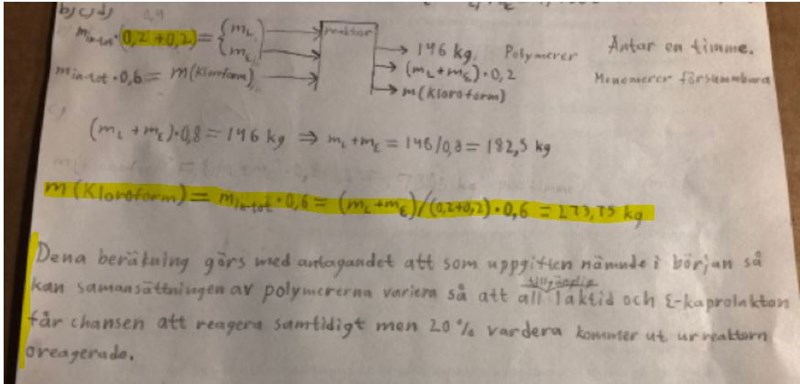 b) c) d)
m_in-tot · (0,2 + 0,2) = { m_L
m_ε
reaktor
→ 146 kg. Polymerer Antar en timme.
→ (m_L + m_ε) · 0,2 Monomerer försumbara
m_in-tot · 0,6 = m(Kloroform)
→ m(Kloroform)
(m_L + m_ε) · 0,8 = 146 kg ⇒ m_L + m_ε = 146/0,8 = 182,5 kg
m(Kloroform) = m_in-tot · 0,6 = (m_L + m_ε)/(0,2+0,2) · 0,6 = 273,75 kg
Dena beräkning görs med antagandet att som uppgiften nämnde i början så
kan samansättningen av polymererna variera så att all tillgänglig laktid och ε-kaprolakton
får chansen att reagera samtidigt men 20% vardera kommer ut ur reaktorn
oreagerade.